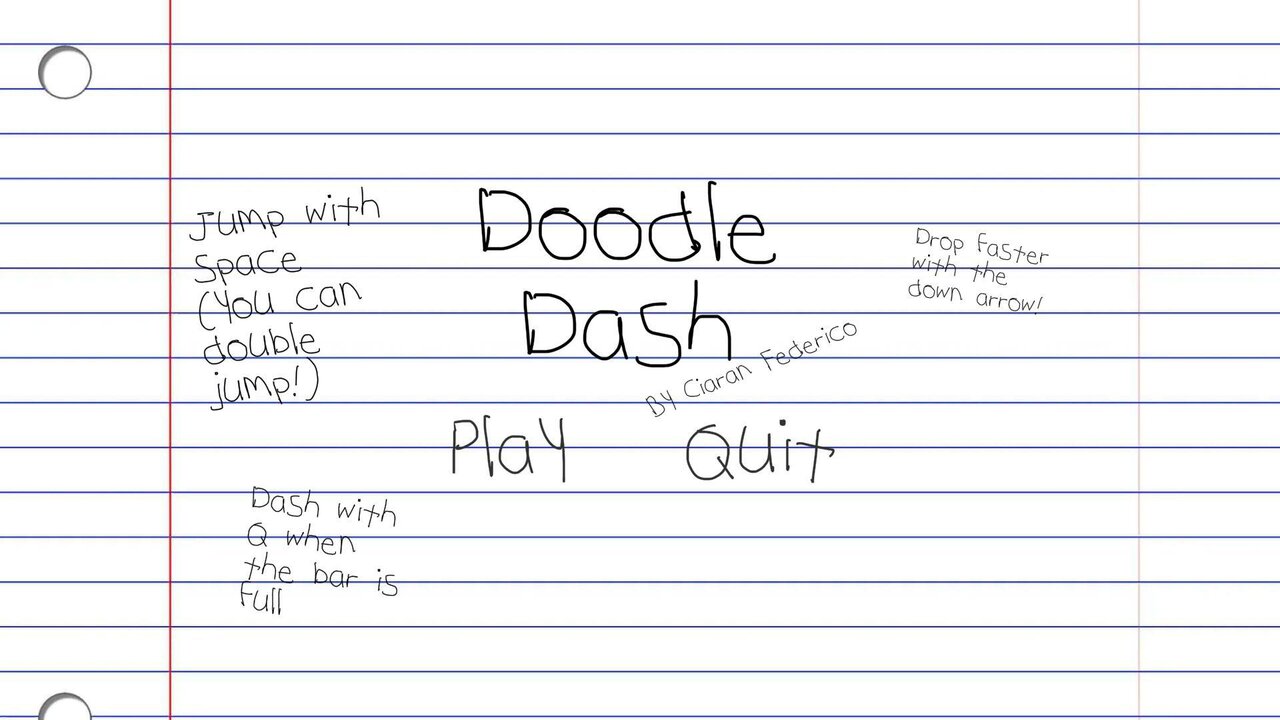 Doodle
Dash
By Ciaran Federico
Jump with
space
(You can
double
jump!)
Drop faster
with the
down arrow!
Play
Quit
Dash with
Q when
the bar is
full